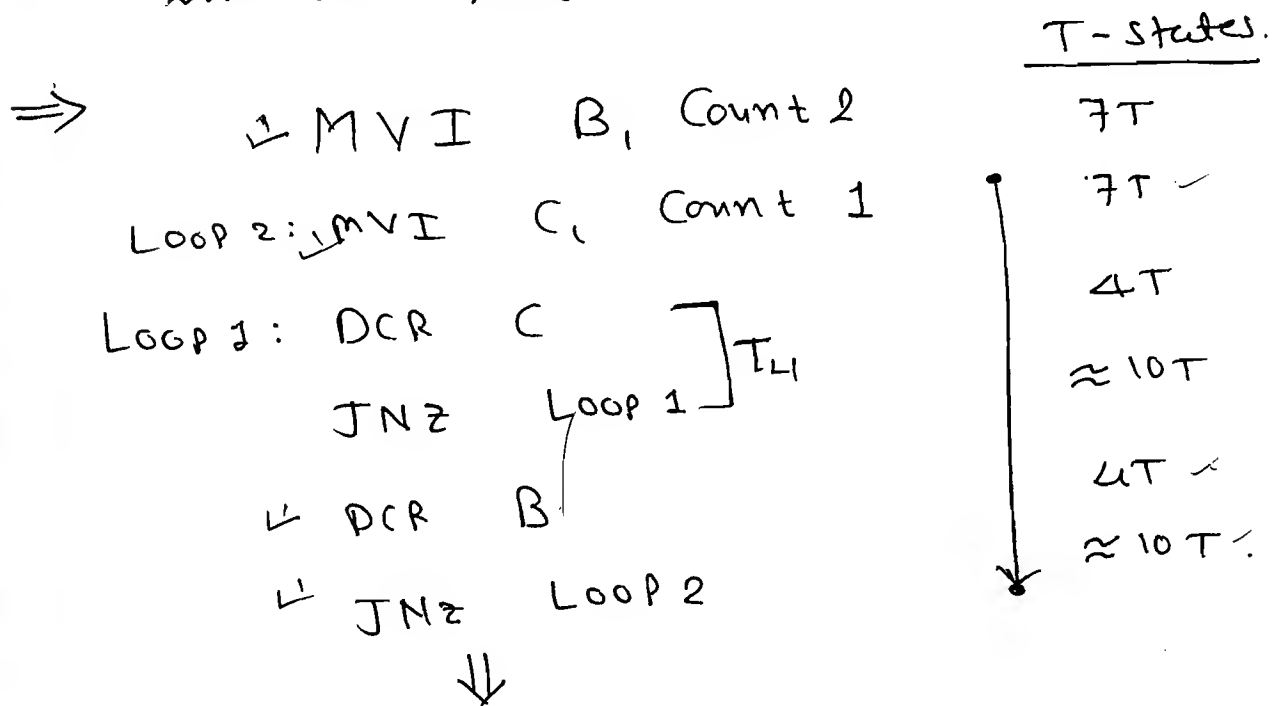 T-states.
⇒ MVI B, Count 2 7T
Loop 2: MVI C, Count 1 7T
Loop 1: DCR C 4T
JNZ Loop 1 ≈ 10T
TL1
DCR B 4T
JNZ LOOP 2 ≈ 10T
⇓